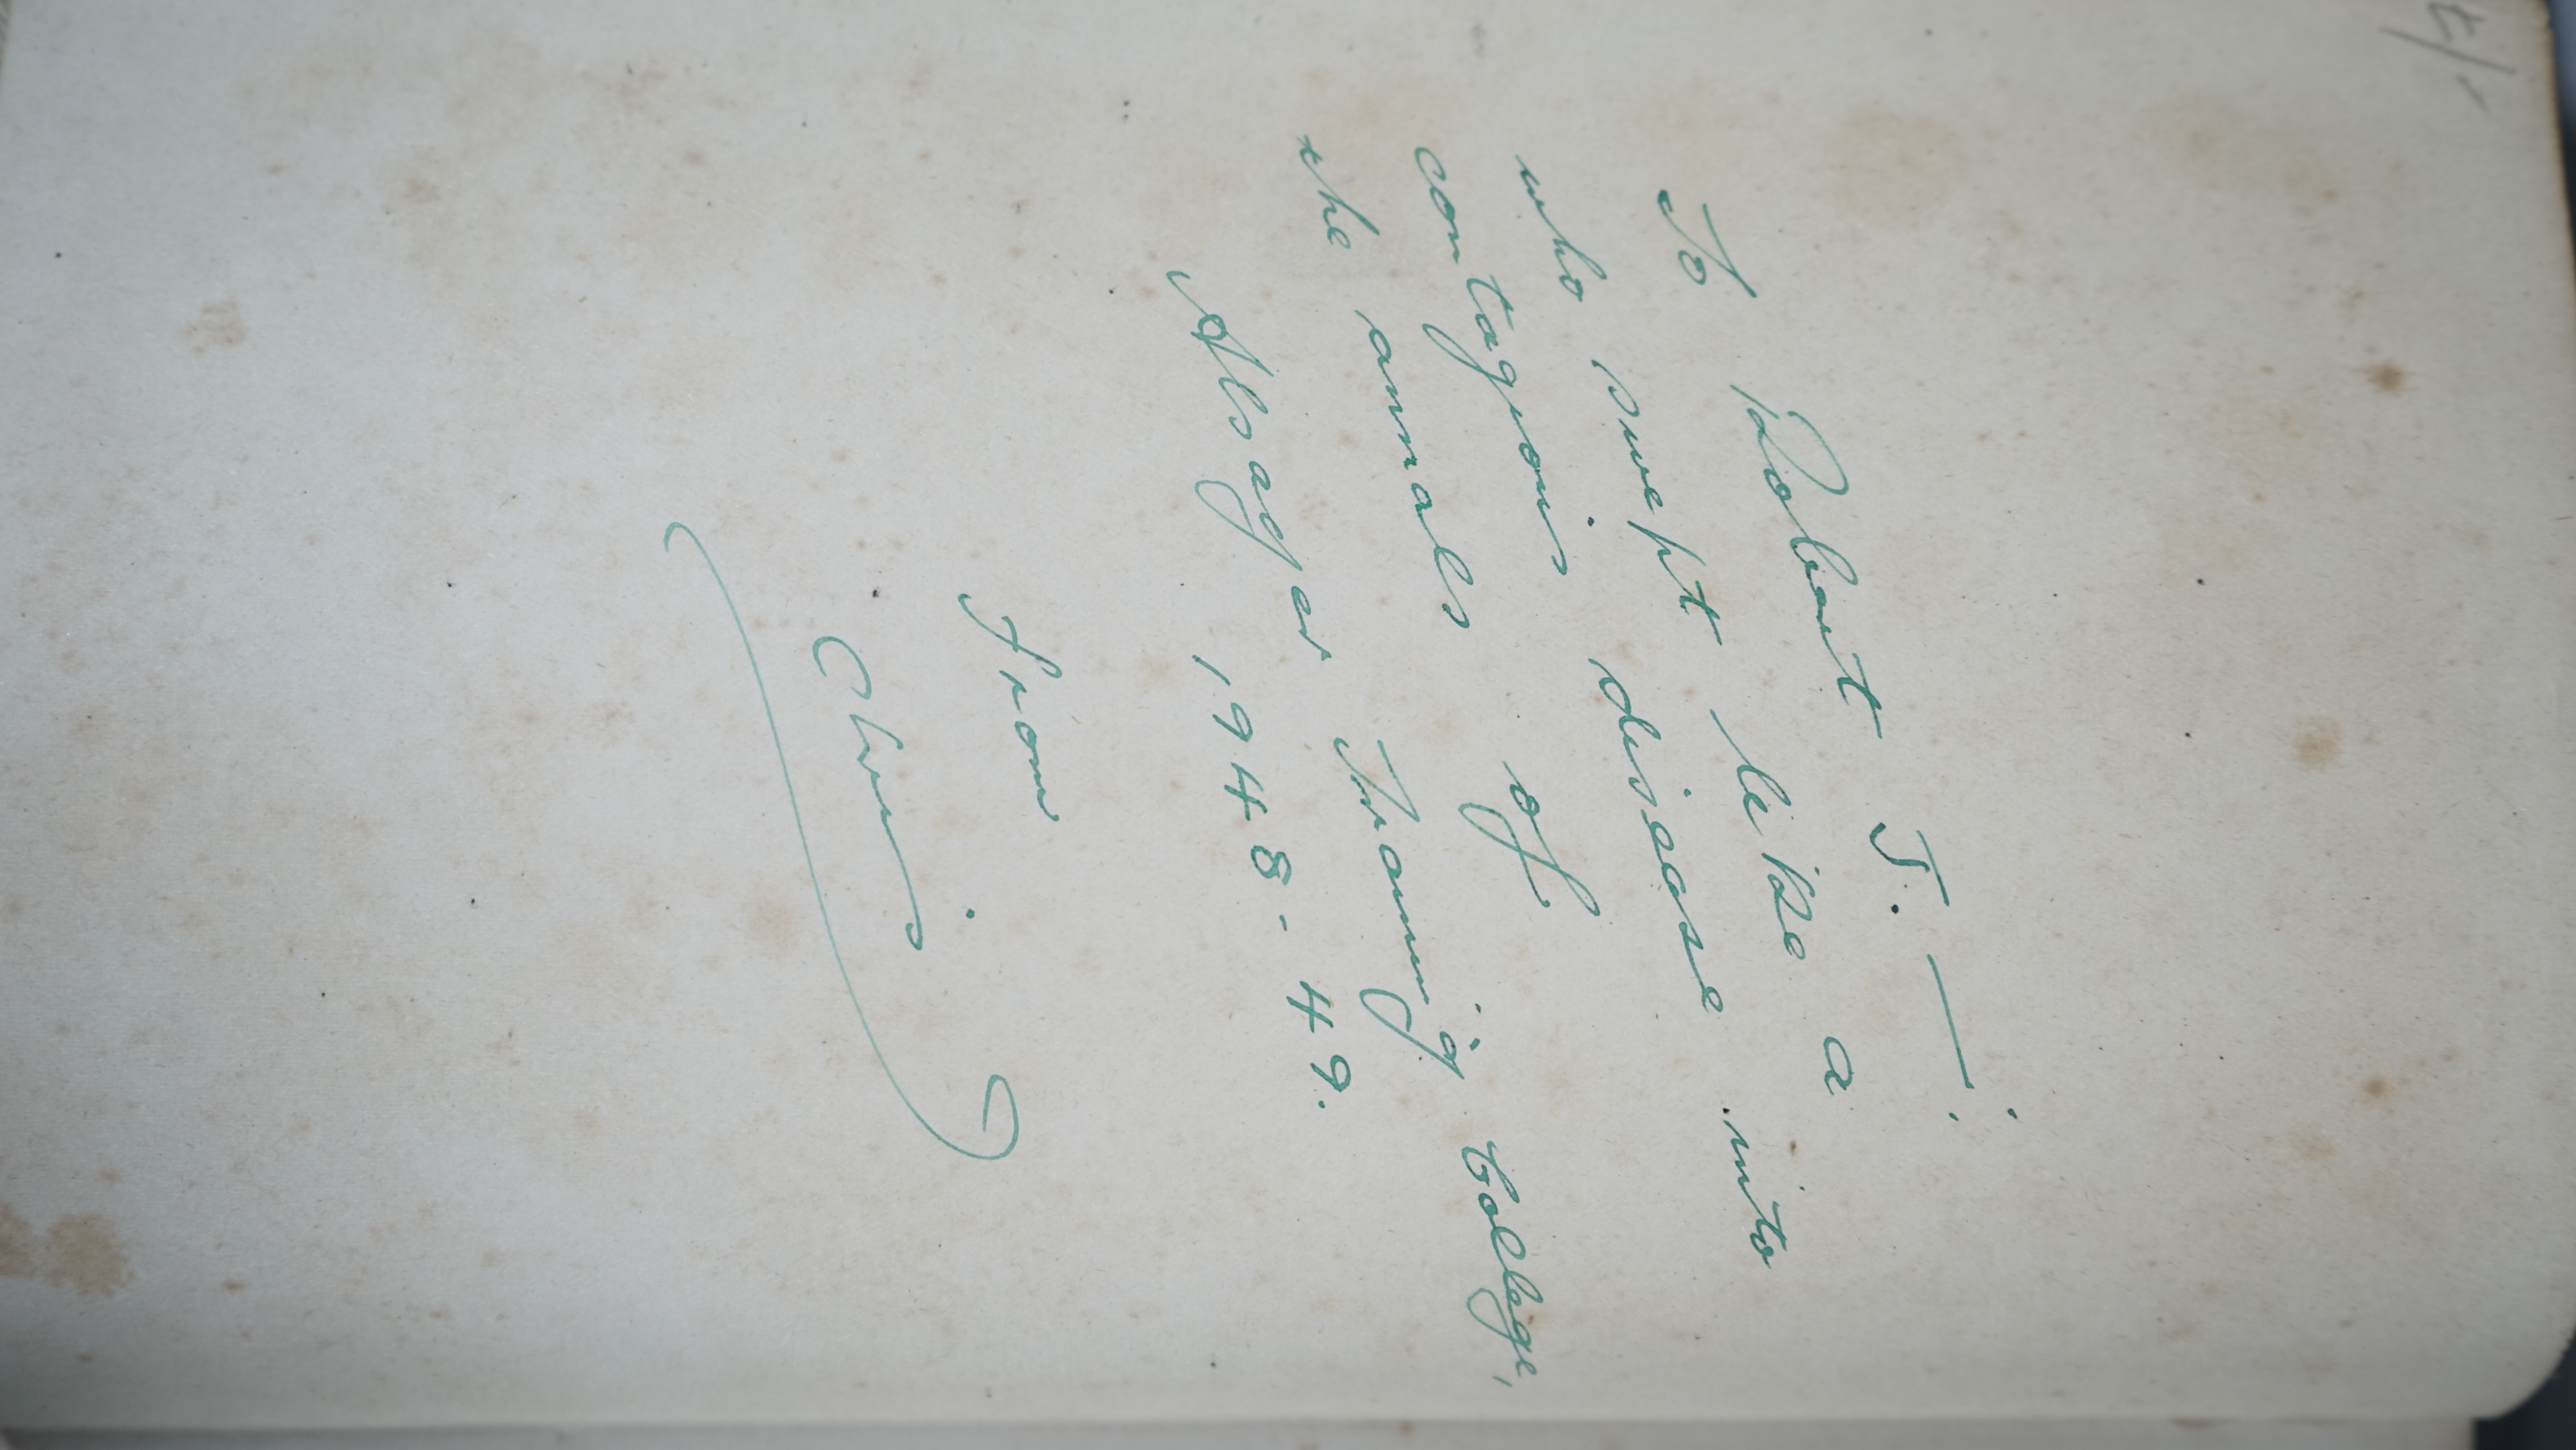 To Robert T. — :
who swept like a
contagious disease into
the annals of
Alsager Training College,
1948-49.
from
Chris.
4/-